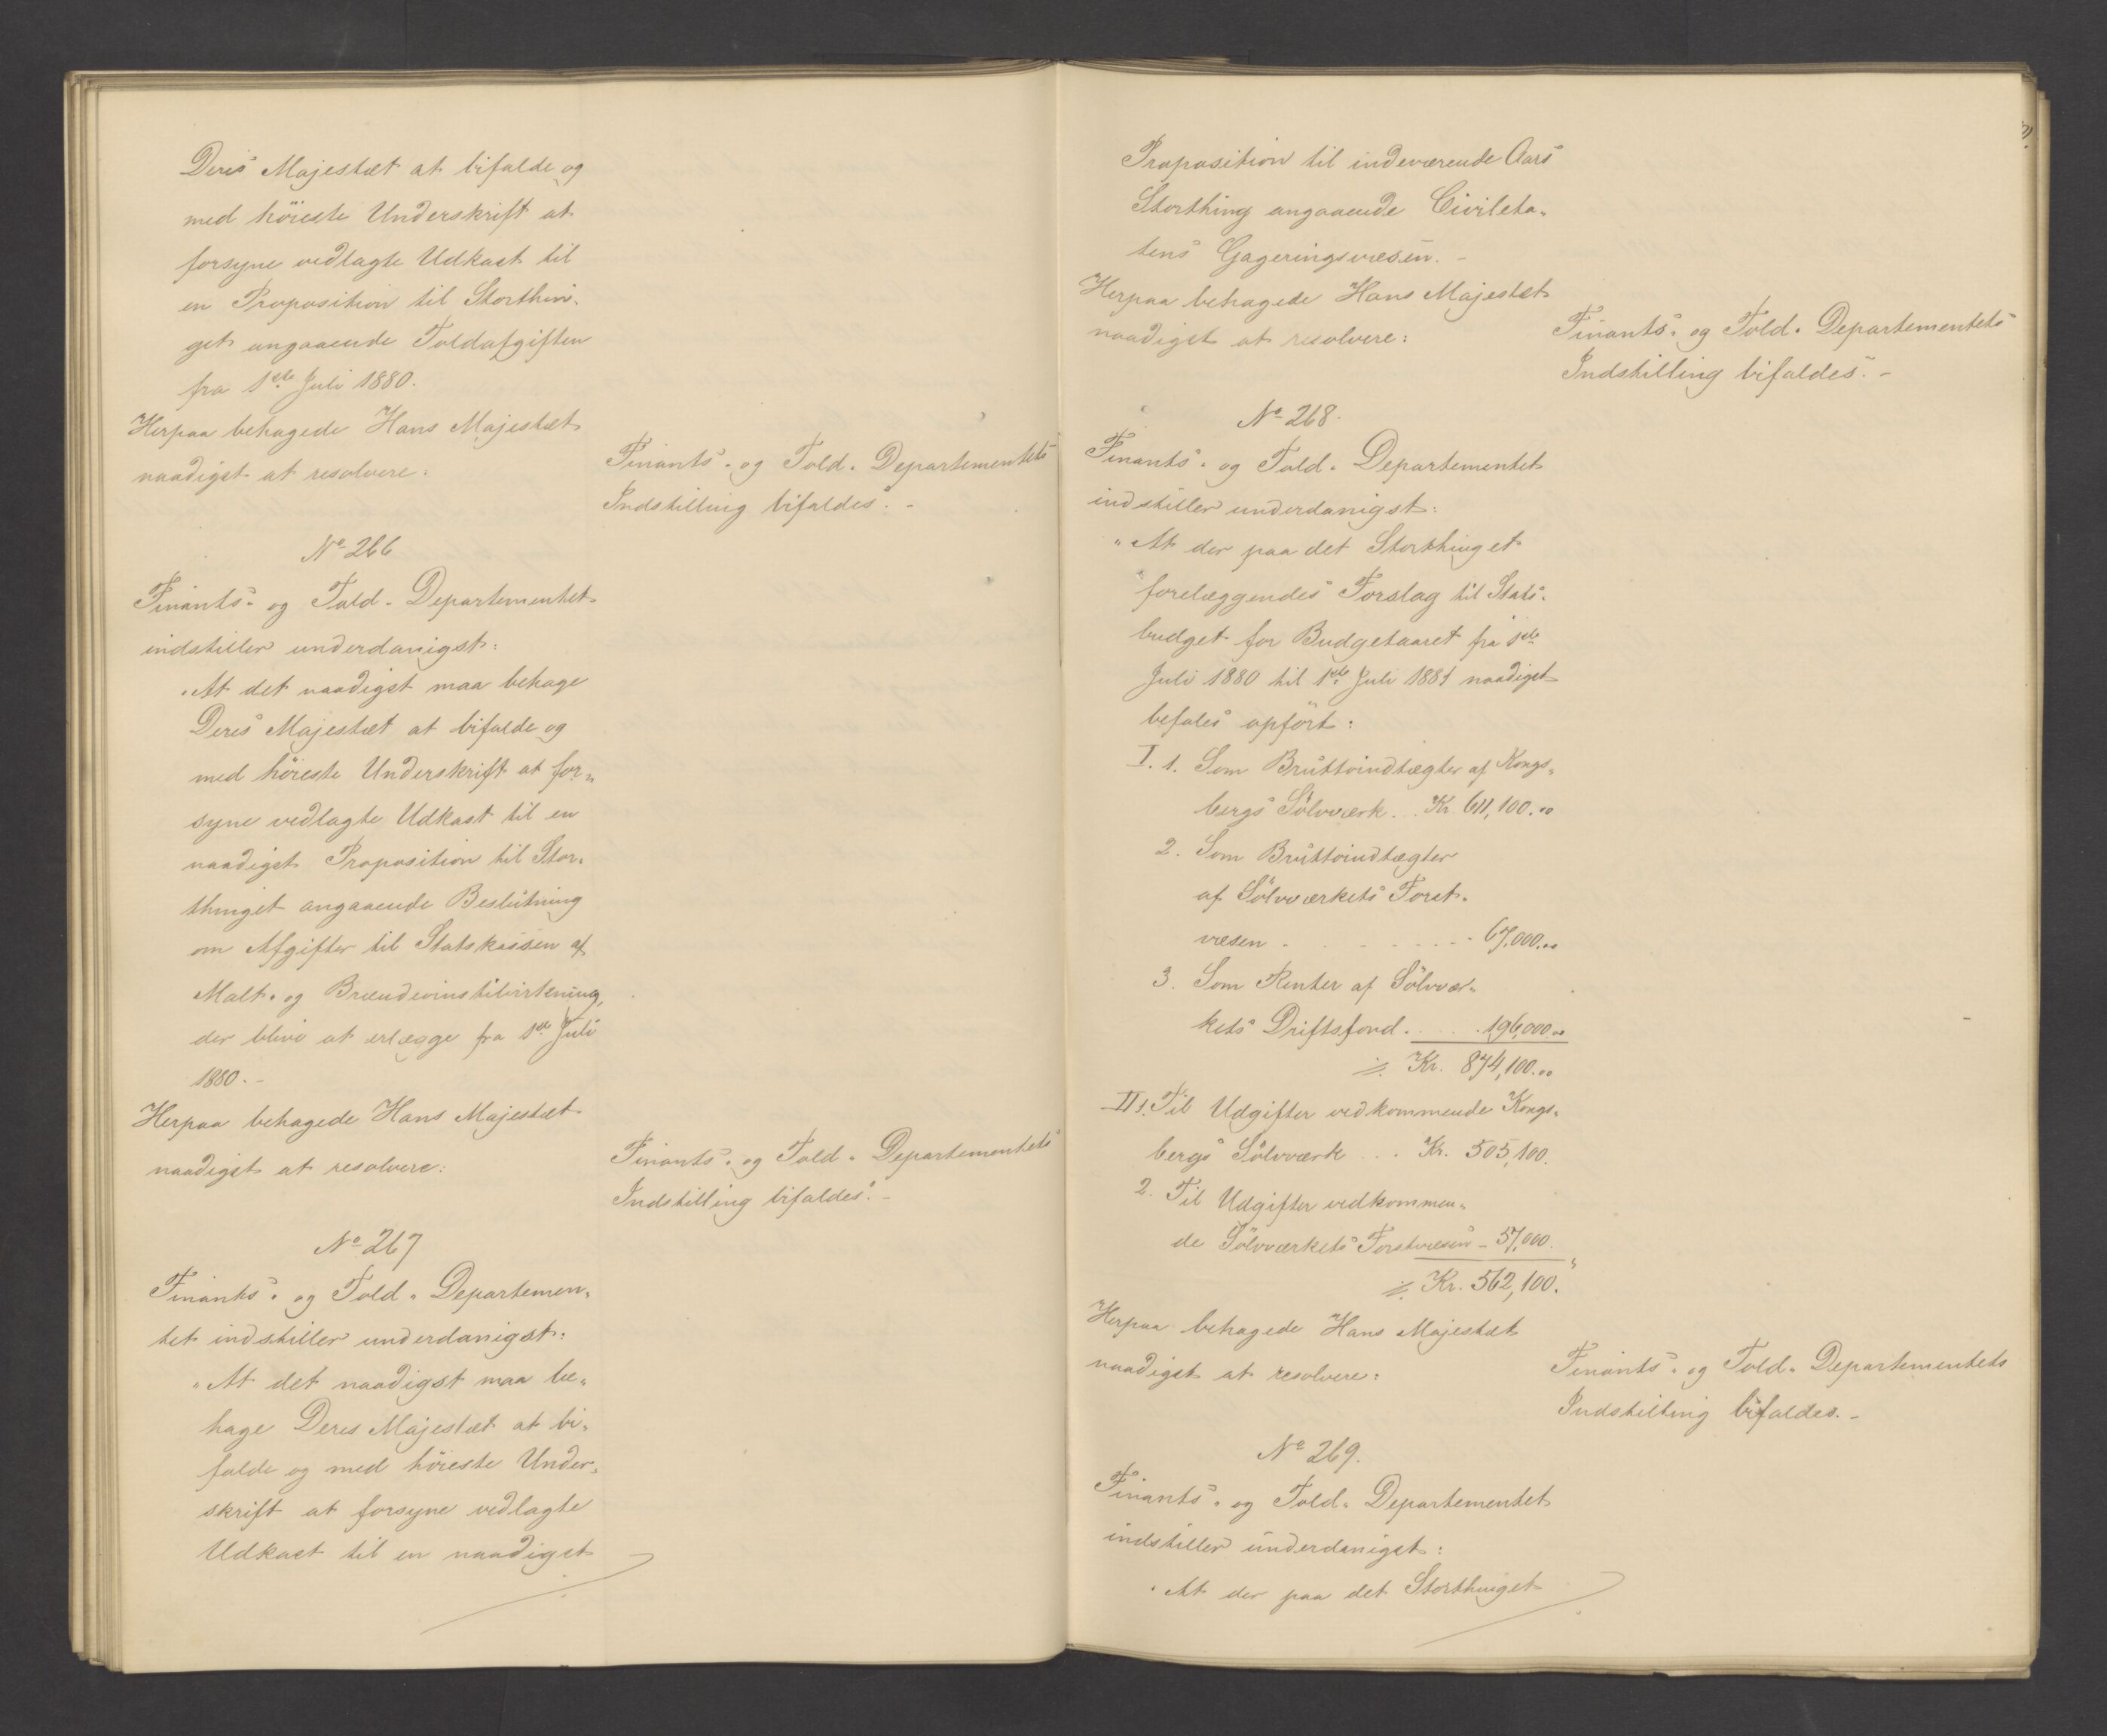 Deres Majestæt at bifalde og
med höieste Underskrift at
forsyne vedlagte Udkast til
en Proposition til Storthin-
get angaaende Toldafgiften
fra 1ste Juli 1880.
Herpaa behagede Hans Majestæt
naadigst at resolvere:
Finants- og Told-Departementets
Indstilling bifaldes. -
No 266
Finants- og Told-Departementet
indstiller underdanigst:
"At det naadigst maa behage
Deres Majestæt at bifalde og
med höieste Underskrift at for-
syne vedlagte Udkast til en
naadigst Proposition til Stor-
thinget angaaende Beslutning
om Afgifter til Statskassen af
Malt- og Brændevinstilvirkning,
der blive at erlægge fra 1ste Juli
1880. -
Herpaa behagede Hans Majestæt
naadigst at resolvere:
Finants- og Told-Departementets
Indstilling bifaldes. -
No 267
Finants- og Told-Departemen-
tet indstiller underdanigst:
"At det naadigst maa be-
hage Deres Majestæt at bi-
falde og med höieste Under-
skrift at forsyne vedlagte
Udkast til en naadigst
Proposition til indeværende Aars
Storthing angaaende Civileta-
tens Gageringsvæsen. -
Herpaa behagede Hans Majestæt
naadigst at resolvere:
Finants- og Told-Departementets
Indstilling bifaldes. -
No 268.
Finants- og Told-Departementet
indstiller underdanigst:
"At der paa det Storthinget
forelæggendes Forslag til Stats-
budget for Budgetaaret fra 1ste
Juli 1880 til 1ste Juli 1881 naadigst
befales opfört:
I. 1. Som Bruttoindtægter af Kongs-
bergs Sölvværk . . Kr. 611,100.00
2. Som Bruttoindtægter
af Sölvværkets Forst-
væsen - . . - - - - 67,000.00
3. Som Renter af Sölvvær-
kets Driftsfond . . . . 196,000.00
Kr. 874,100.00
II 1. Til Udgifter vedkommende Kongs-
bergs Sölvværk . . . Kr. 505,100.
2. Til Udgifter vedkommen-
de Sölvværkets Forstvæsen - 57,000.
Kr. 562,100."
Herpaa behagede Hans Majestæt
naadigst at resolvere:
Finants- og Told-Departementets
Indstilling bifaldes. -
No 269.
Finants- og Told-Departementet
indstiller underdanigst:
"At der paa det Storthinget